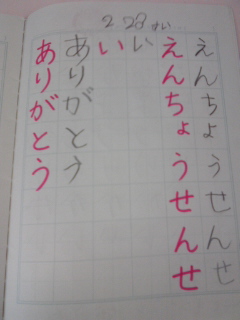 2 28 すい
えんちょうせんせ
えんちょうせんせ
い
い
ありがとう
ありがとう